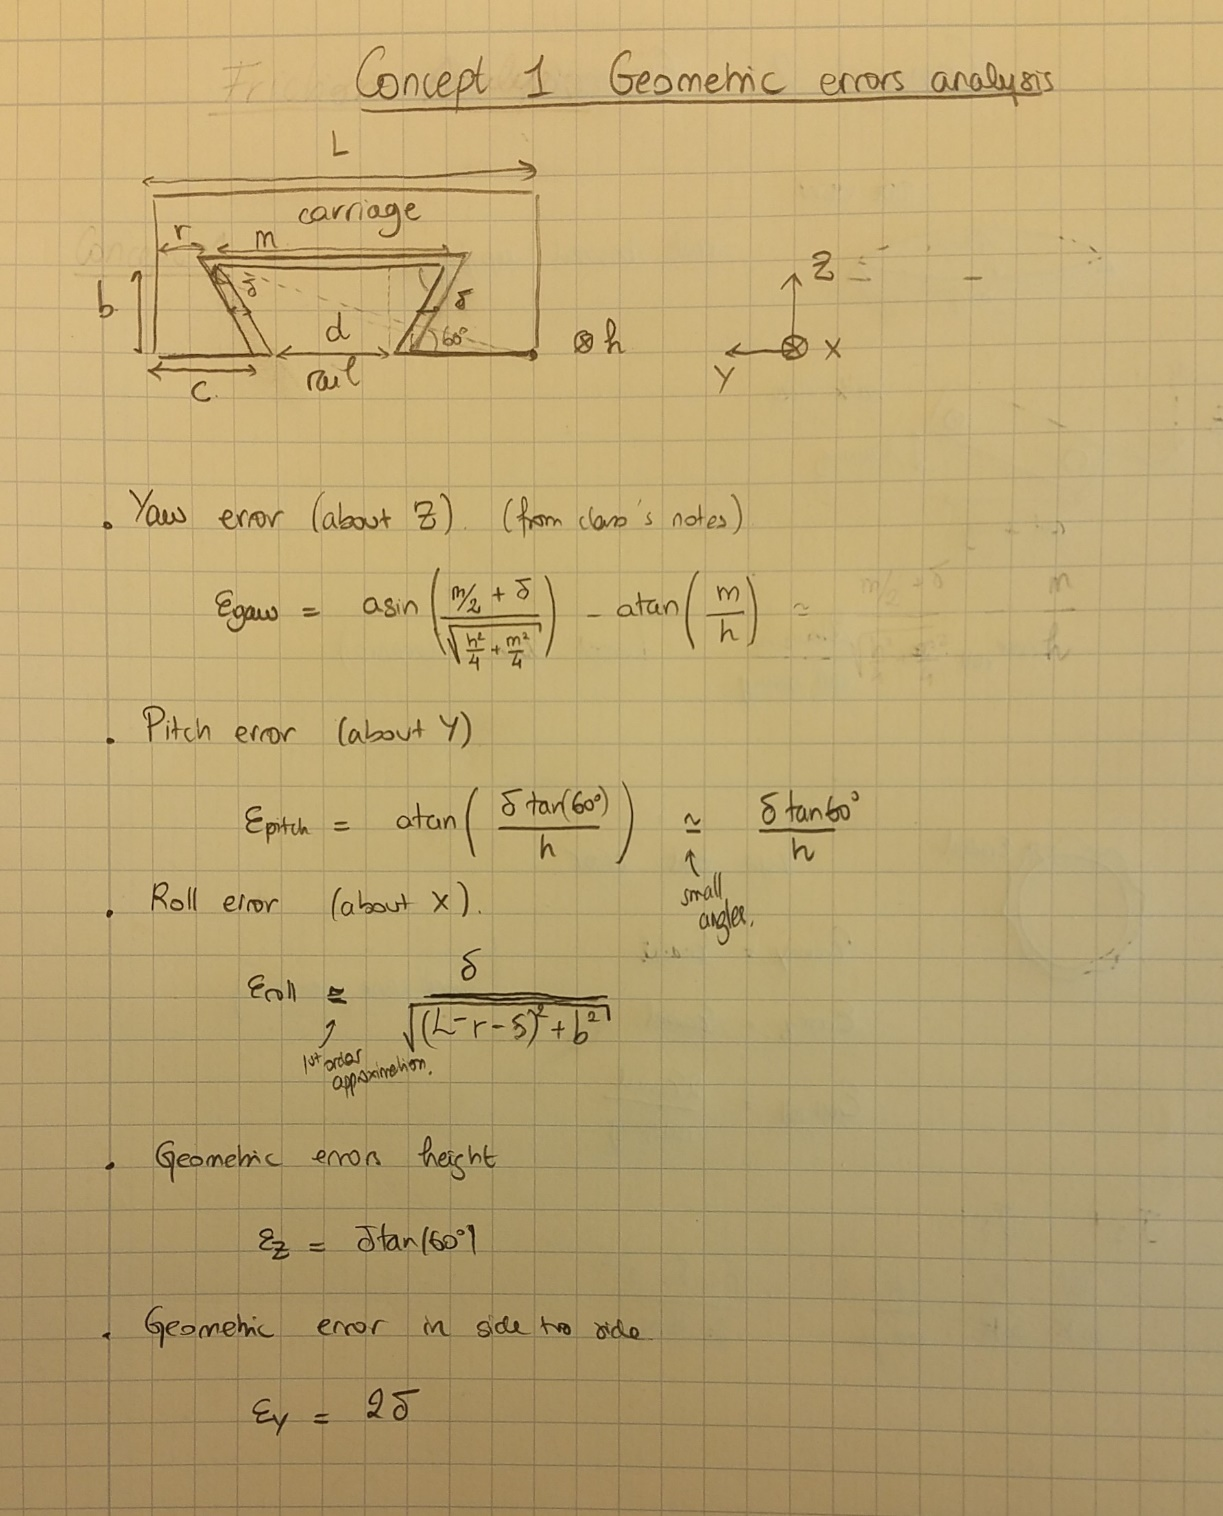 Concept 1 Geometric errors analysis
L
carriage
r m
b δ δ
d 60°
c rail
⊗ h
Z
Y X
. Yaw error (about Z). (from class's notes)
εyaw = asin( (m/2 + δ) / √(h²/4 + m²/4) ) - atan( m/h ) ≈
. Pitch error (about Y)
εpitch = atan( δ tan(60°) / h ) ≃ δ tan60° / h
↑
small
angles.
. Roll error (about X).
εroll ≅ δ / √((L-r-δ)² + b²)
1st order
approximation.
. Geometric errors height
εz = δtan(60°)
. Geometric error in side to side
εy = 2δ